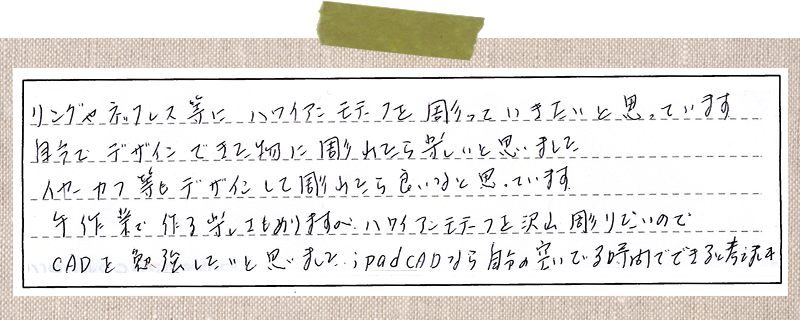 リングやネックレス等に ハワイアンモチーフを 彫っていきたいと思っています
自分で デザインできた物に彫れたら楽しいと思いました
イヤーカフ等もデザインして彫れたら良いなと思っています
手作業で作る楽しさもありますが、ハワイアンモチーフを沢山彫りたいので
CADを勉強したいと思いました。ipadCADなら自分の空いてる時間でできると考え